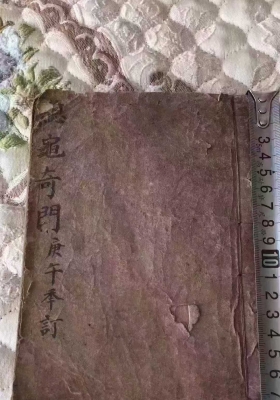 龜奇門庚午季訂
3 4 5 6 7 8 9 10 1 2 3 4 5 6 7